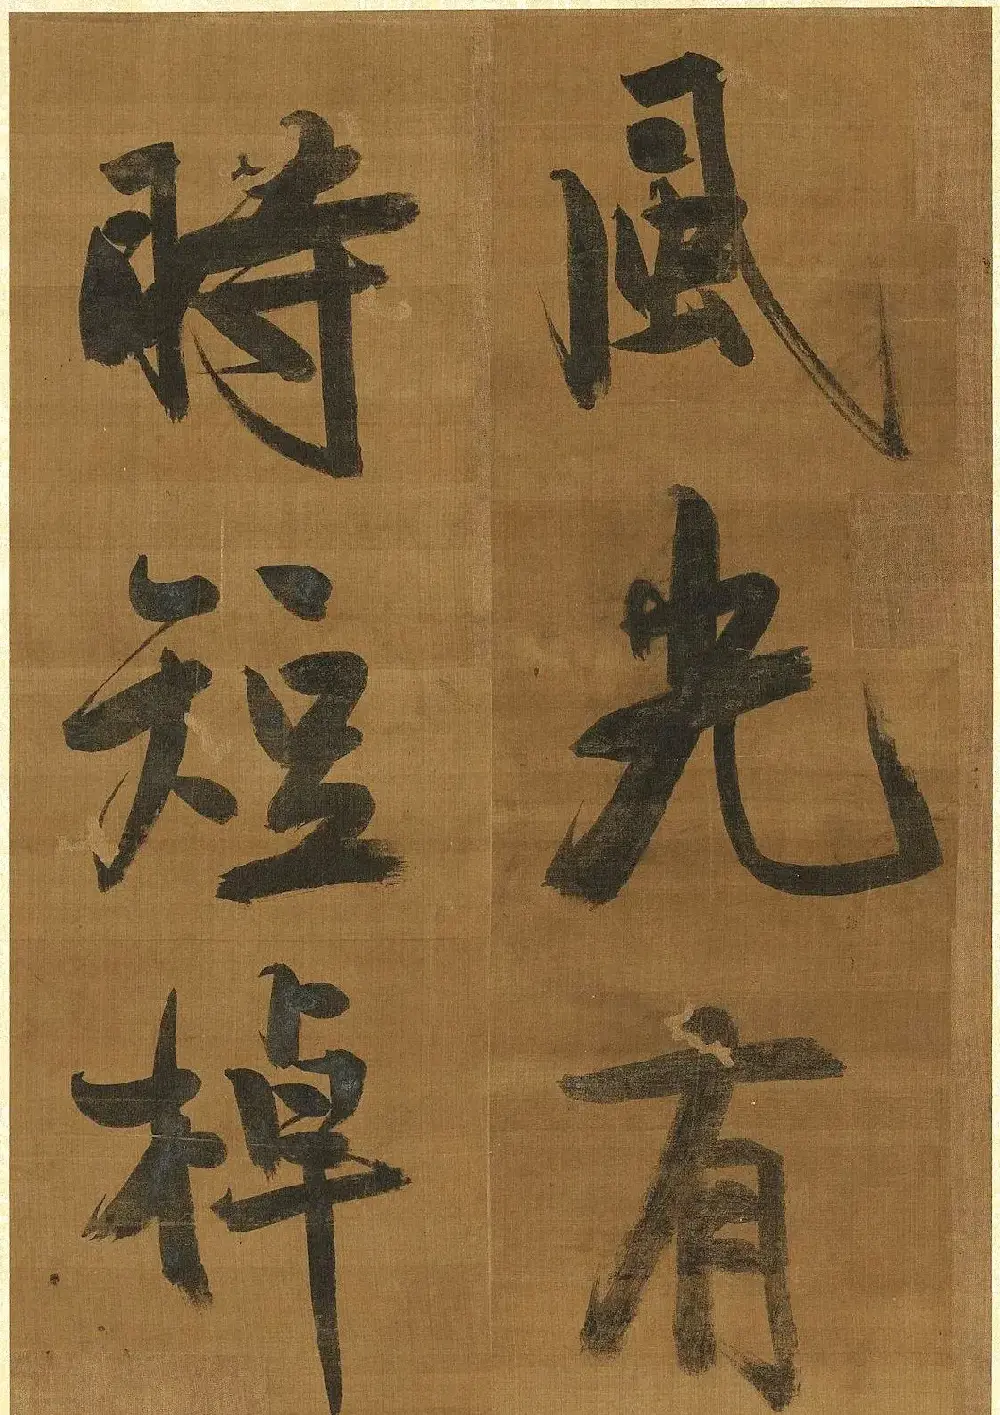 風光有
時短棹